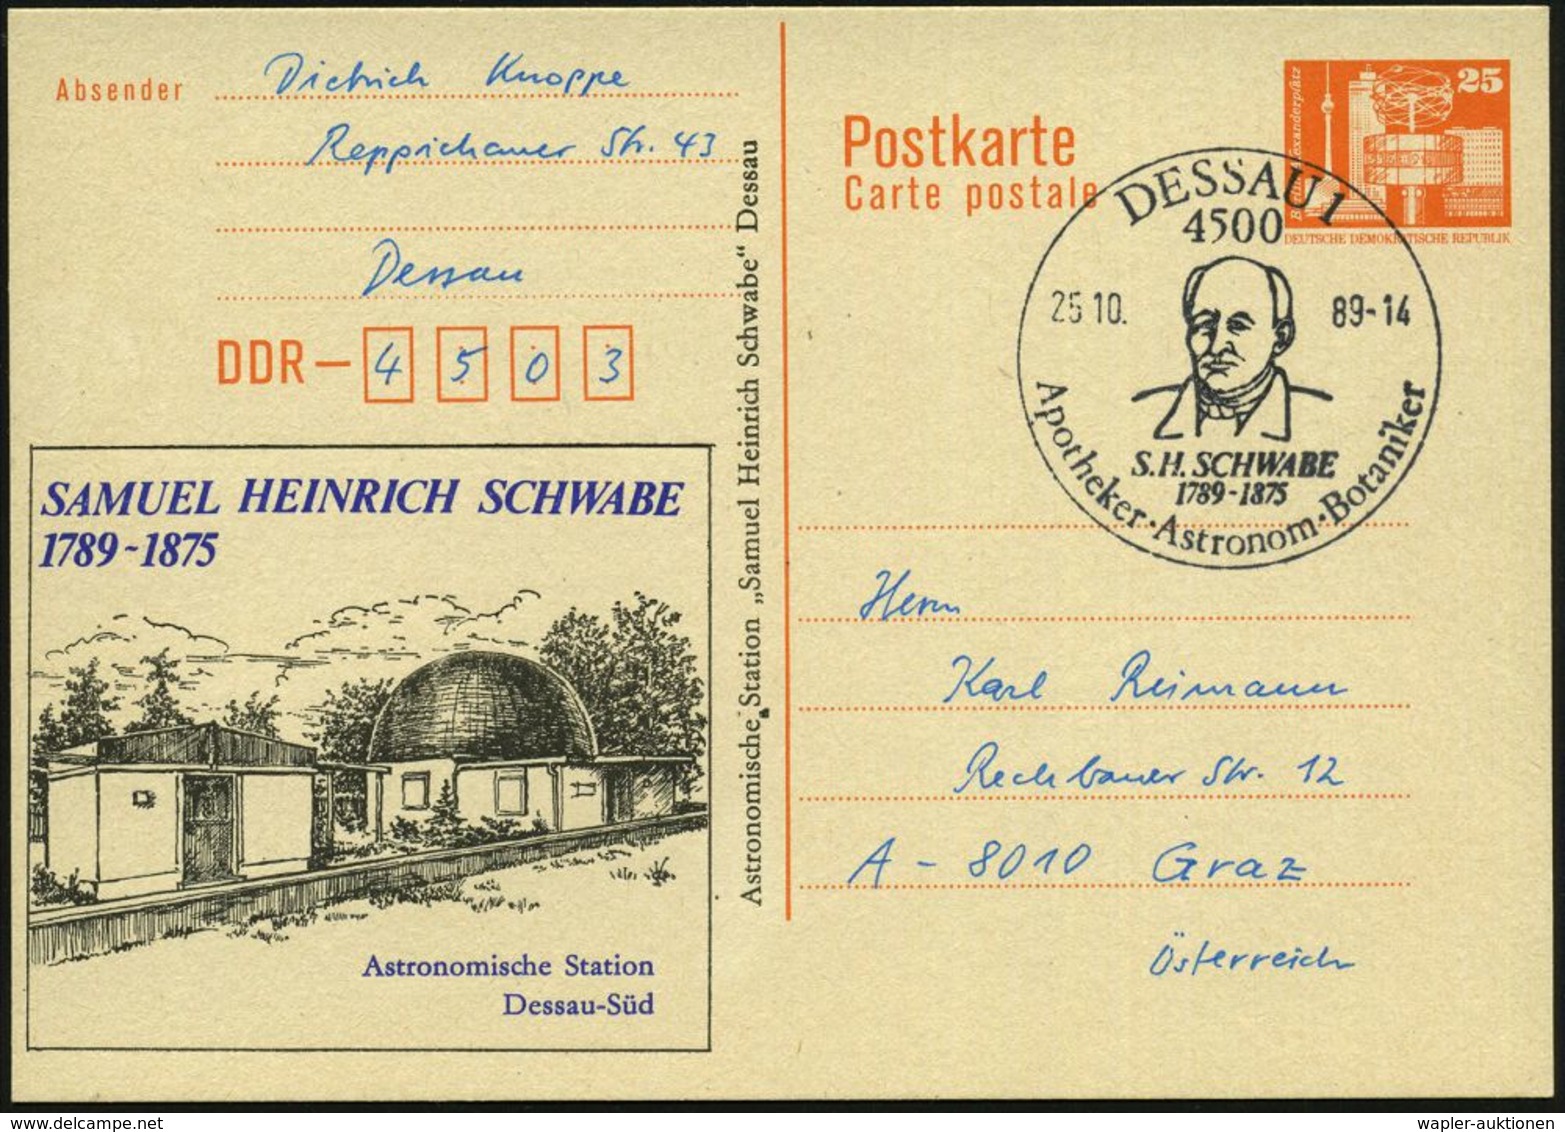 Absender Dietrich Knoppe
Reppichauer Str. 43
Dessau
DDR – 4 5 0 3
SAMUEL HEINRICH SCHWABE
1789-1875
Astronomische Station
Dessau-Süd
Astronomische Station „Samuel Heinrich Schwabe“ Dessau
Postkarte
Carte postale
25
Berlin, Alexanderplatz
DEUTSCHE DEMOKRATISCHE REPUBLIK
DESSAU 1
4500
25 10. 89-14
S.H. SCHWABE
1789-1875
Apotheker · Astronom · Botaniker
Herrn
Karl Reimann
Rechbauer Str. 12
A - 8010 Graz
Österreich
wapler-auktionen